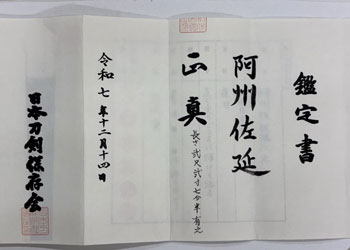 鑑定書
阿州佐延
正真
長サ弐尺弐寸七分半有之
令和七年十二月十四日
日本刀剣保存会